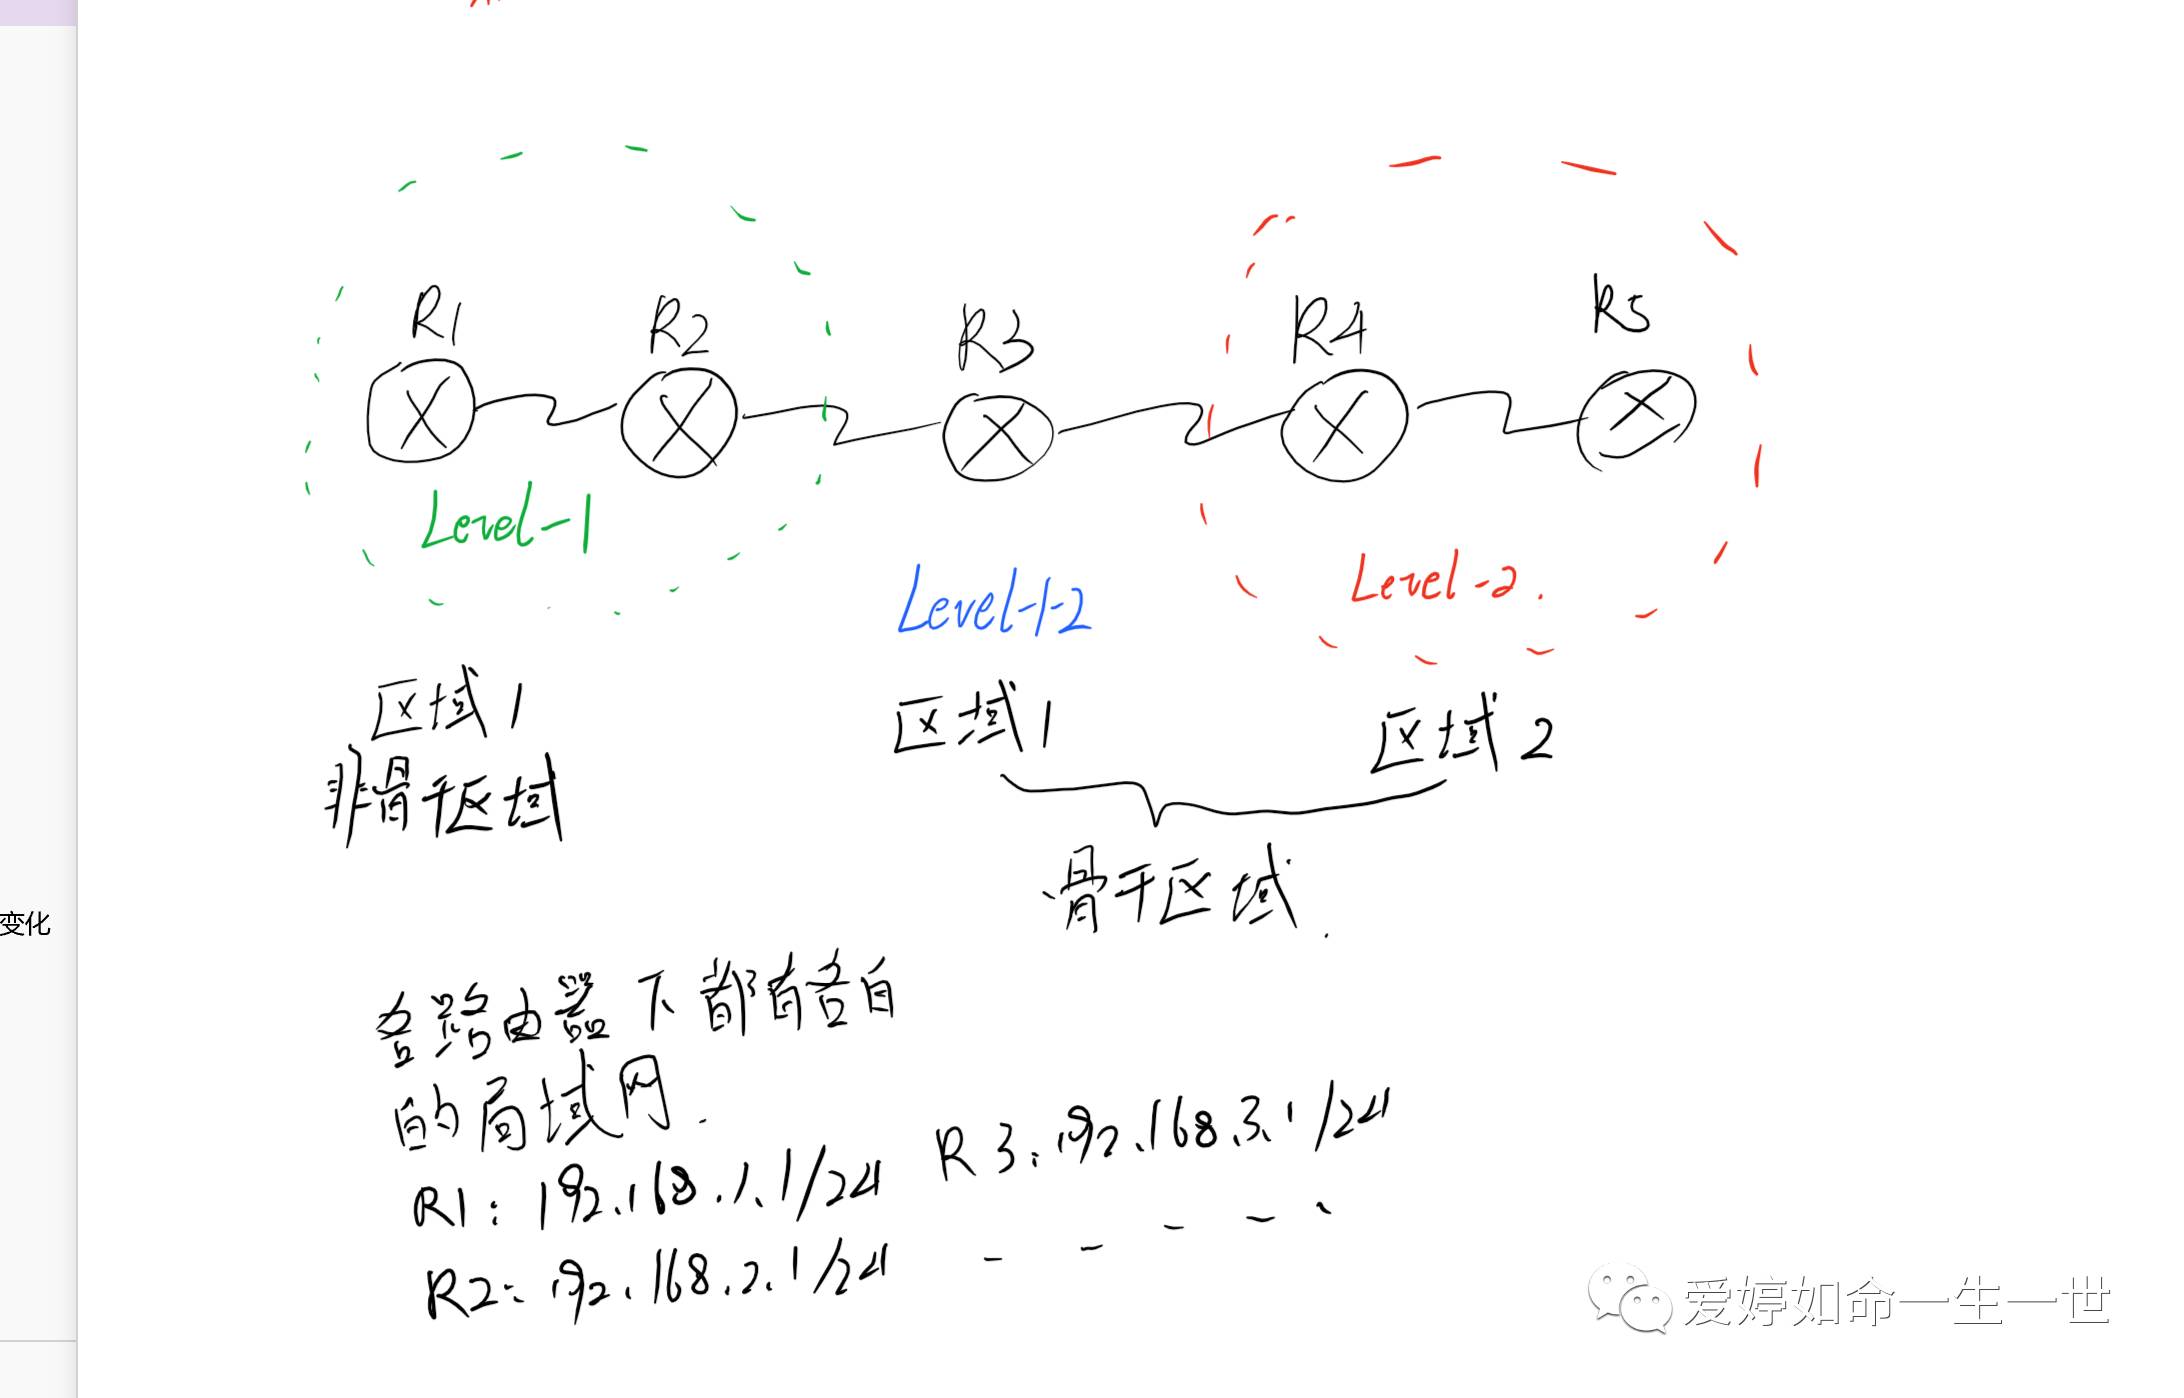 R1 R2 R3 R4 R5
Level-1
Level-1-2
Level-2.
区域1 区域1 区域2
非骨干区域
骨干区域.
变化
各路由器下都有各自
的局域网.
R1: 192.168.1.1/24 R3: 192.168.3.1/24
R2: 192.168.2.1/24 - - - - -
爱婷如命一生一世